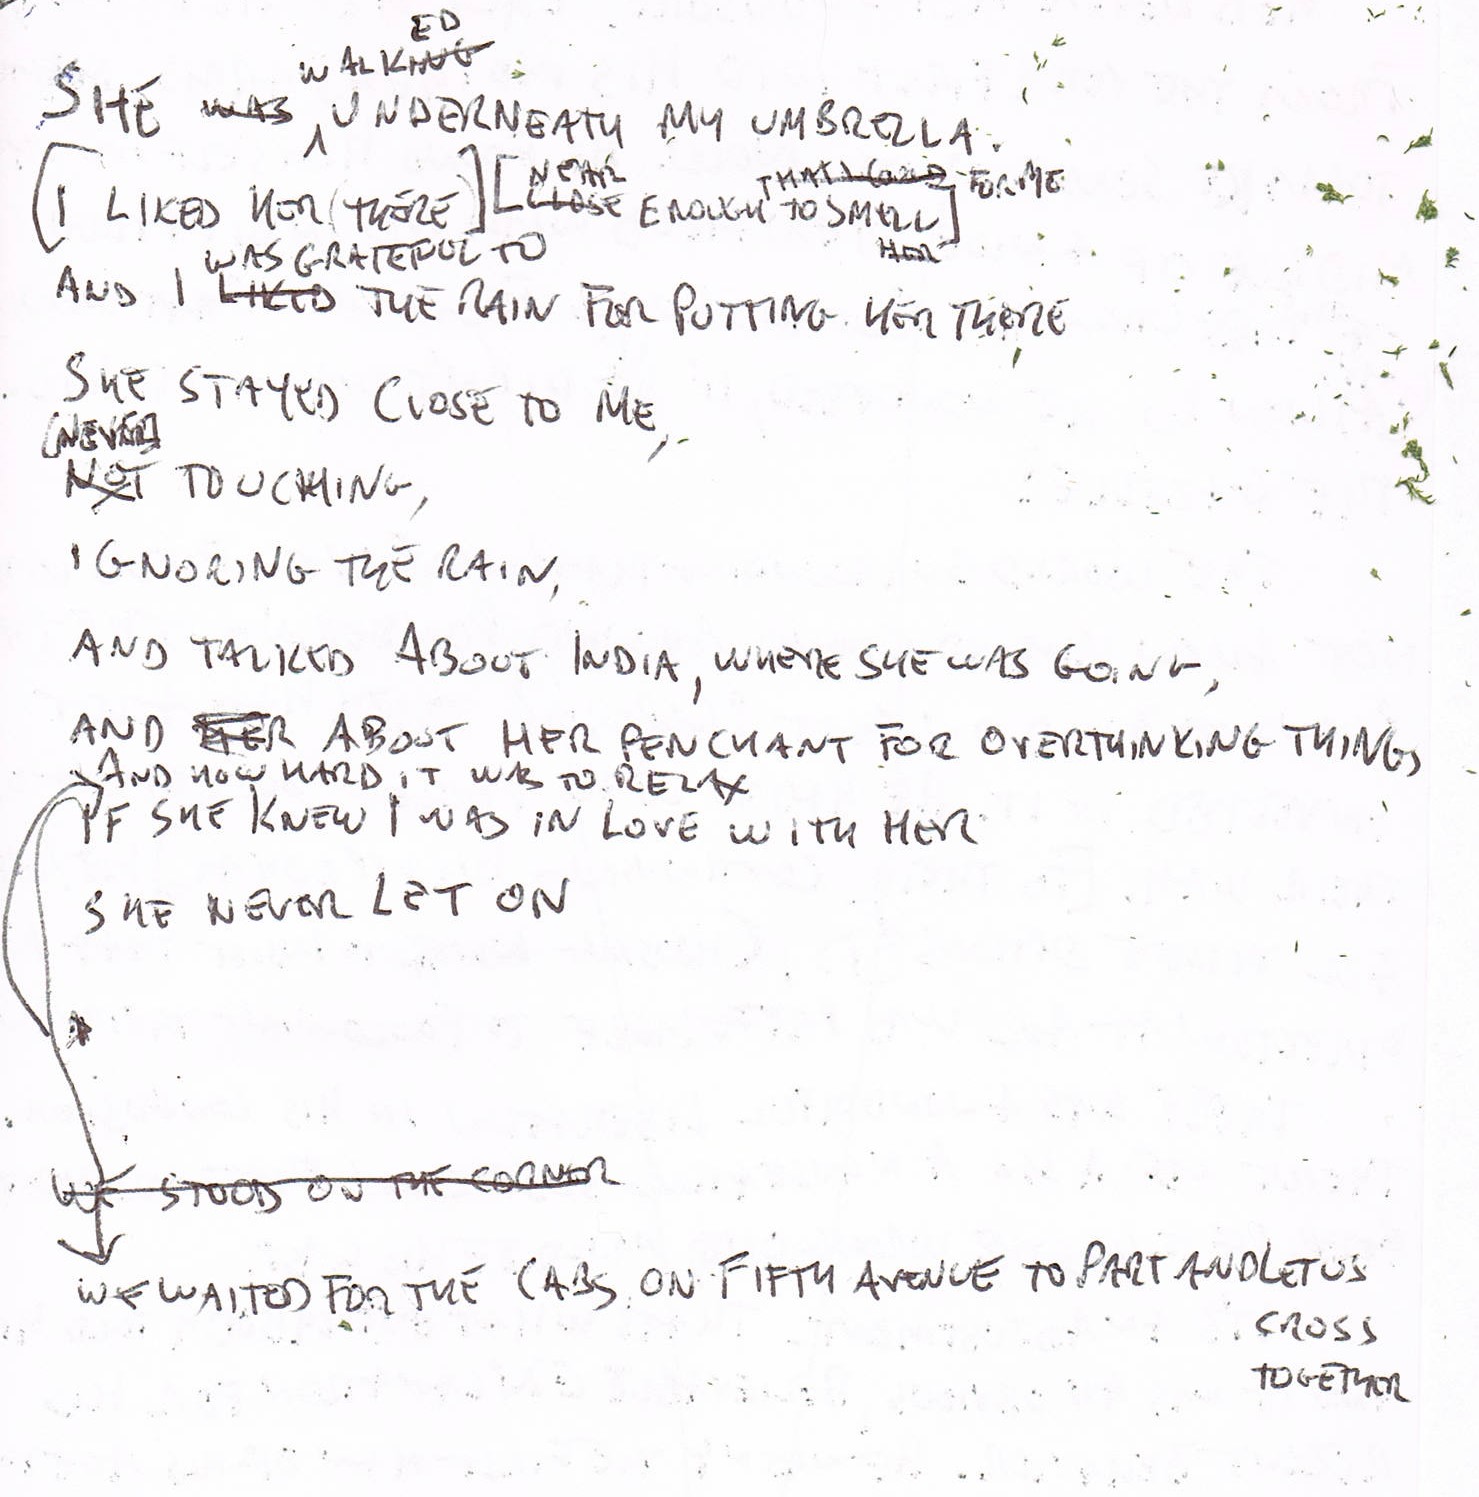 ED
WALKING
SHE WAS UNDERNEATH MY UMBRELLA.
NEAR THAT I COULD FOR ME
[I LIKED HER (THERE)] [CLOSE ENOUGH TO SMELL]
HER
WAS GRATEFUL TO
AND I LIKED THE RAIN FOR PUTTING HER THERE
SHE STAYED CLOSE TO ME,
[NEVER]
NOT TOUCHING,
IGNORING THE RAIN,
AND TALKED ABOUT INDIA, WHERE SHE WAS GOING,
AND HER ABOUT HER PENCHANT FOR OVERTHINKING THINGS
AND HOW HARD IT WAS TO RELAX
IF SHE KNEW I WAS IN LOVE WITH HER
SHE NEVER LET ON
WE STOOD ON THE CORNER
WE WAITED FOR THE CABS ON FIFTH AVENUE TO PART AND LET US
CROSS
TOGETHER